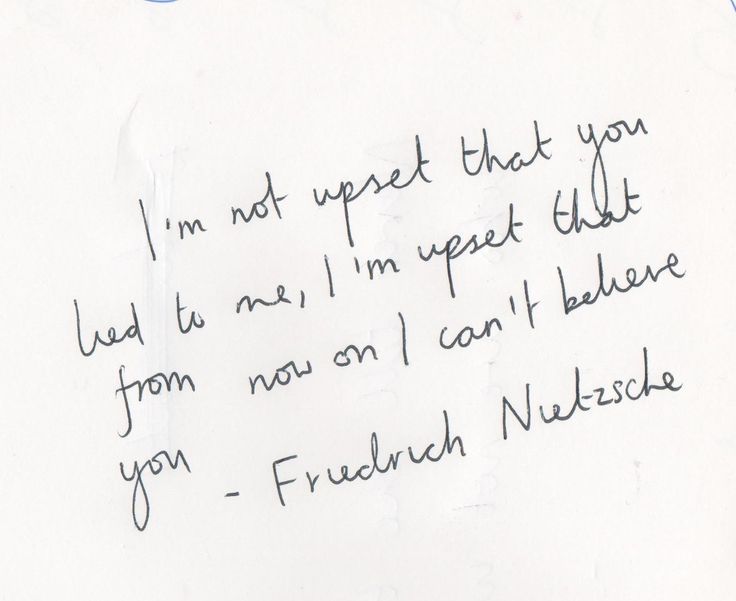 I'm not upset that you
lied to me, I'm upset that
from now on I can't believe
you
- Friedrich Nietzsche